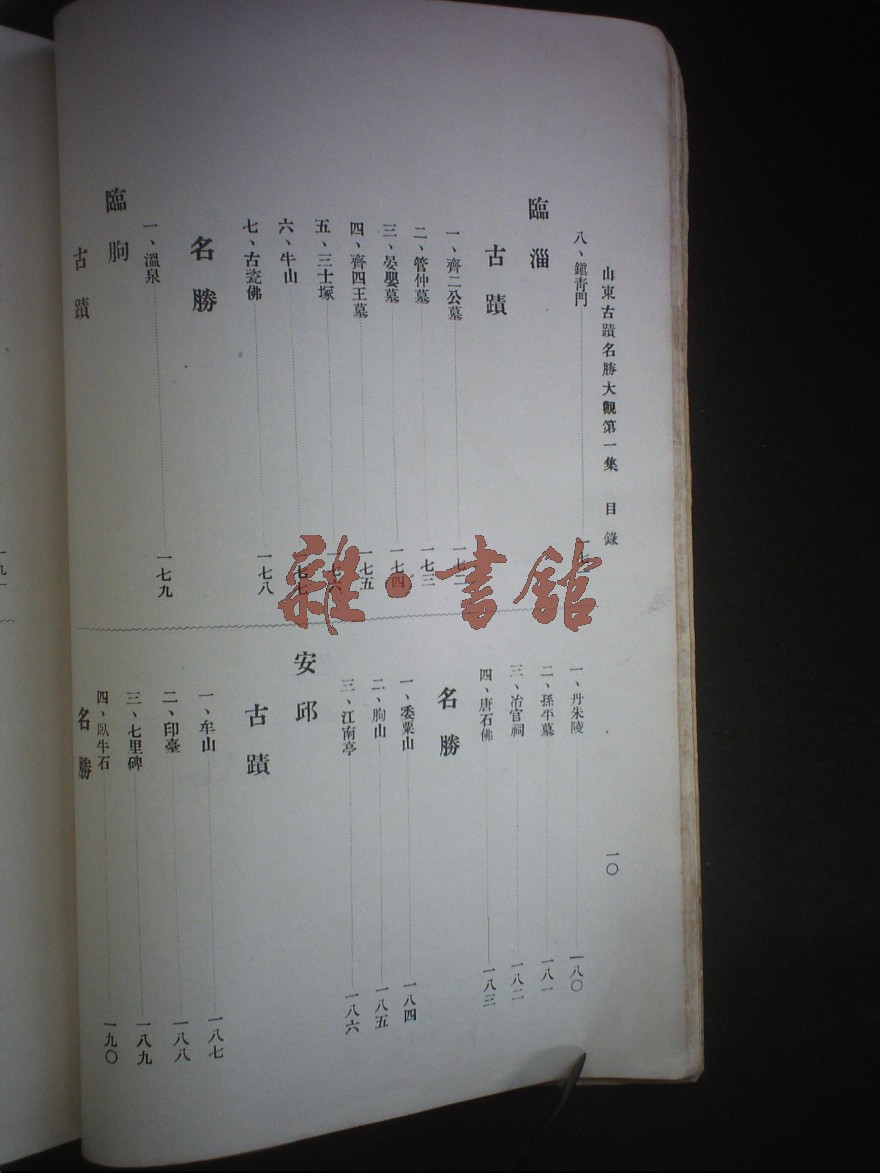 山東古蹟名勝大觀第一集 目錄 一〇
八、鎭靑門
臨淄
古蹟
一、齊二公墓 一七二
二、管仲墓 一七三
三、晏嬰墓 一七四
四、齊四王墓 一七五
五、三士塚 一七六
六、牛山 一七七
七、古瓷佛 一七八
名勝
一、溫泉 一七九
臨朐
古蹟
一、丹朱陵 一八〇
二、孫平墓 一八一
三、冶官祠 一八二
四、唐石佛 一八三
名勝
一、委粟山 一八四
二、朐山 一八五
三、江南亭 一八六
安邱
古蹟
一、牟山 一八七
二、印臺 一八八
三、七里碑 一八九
四、臥牛石 一九〇
名勝
雜·書館